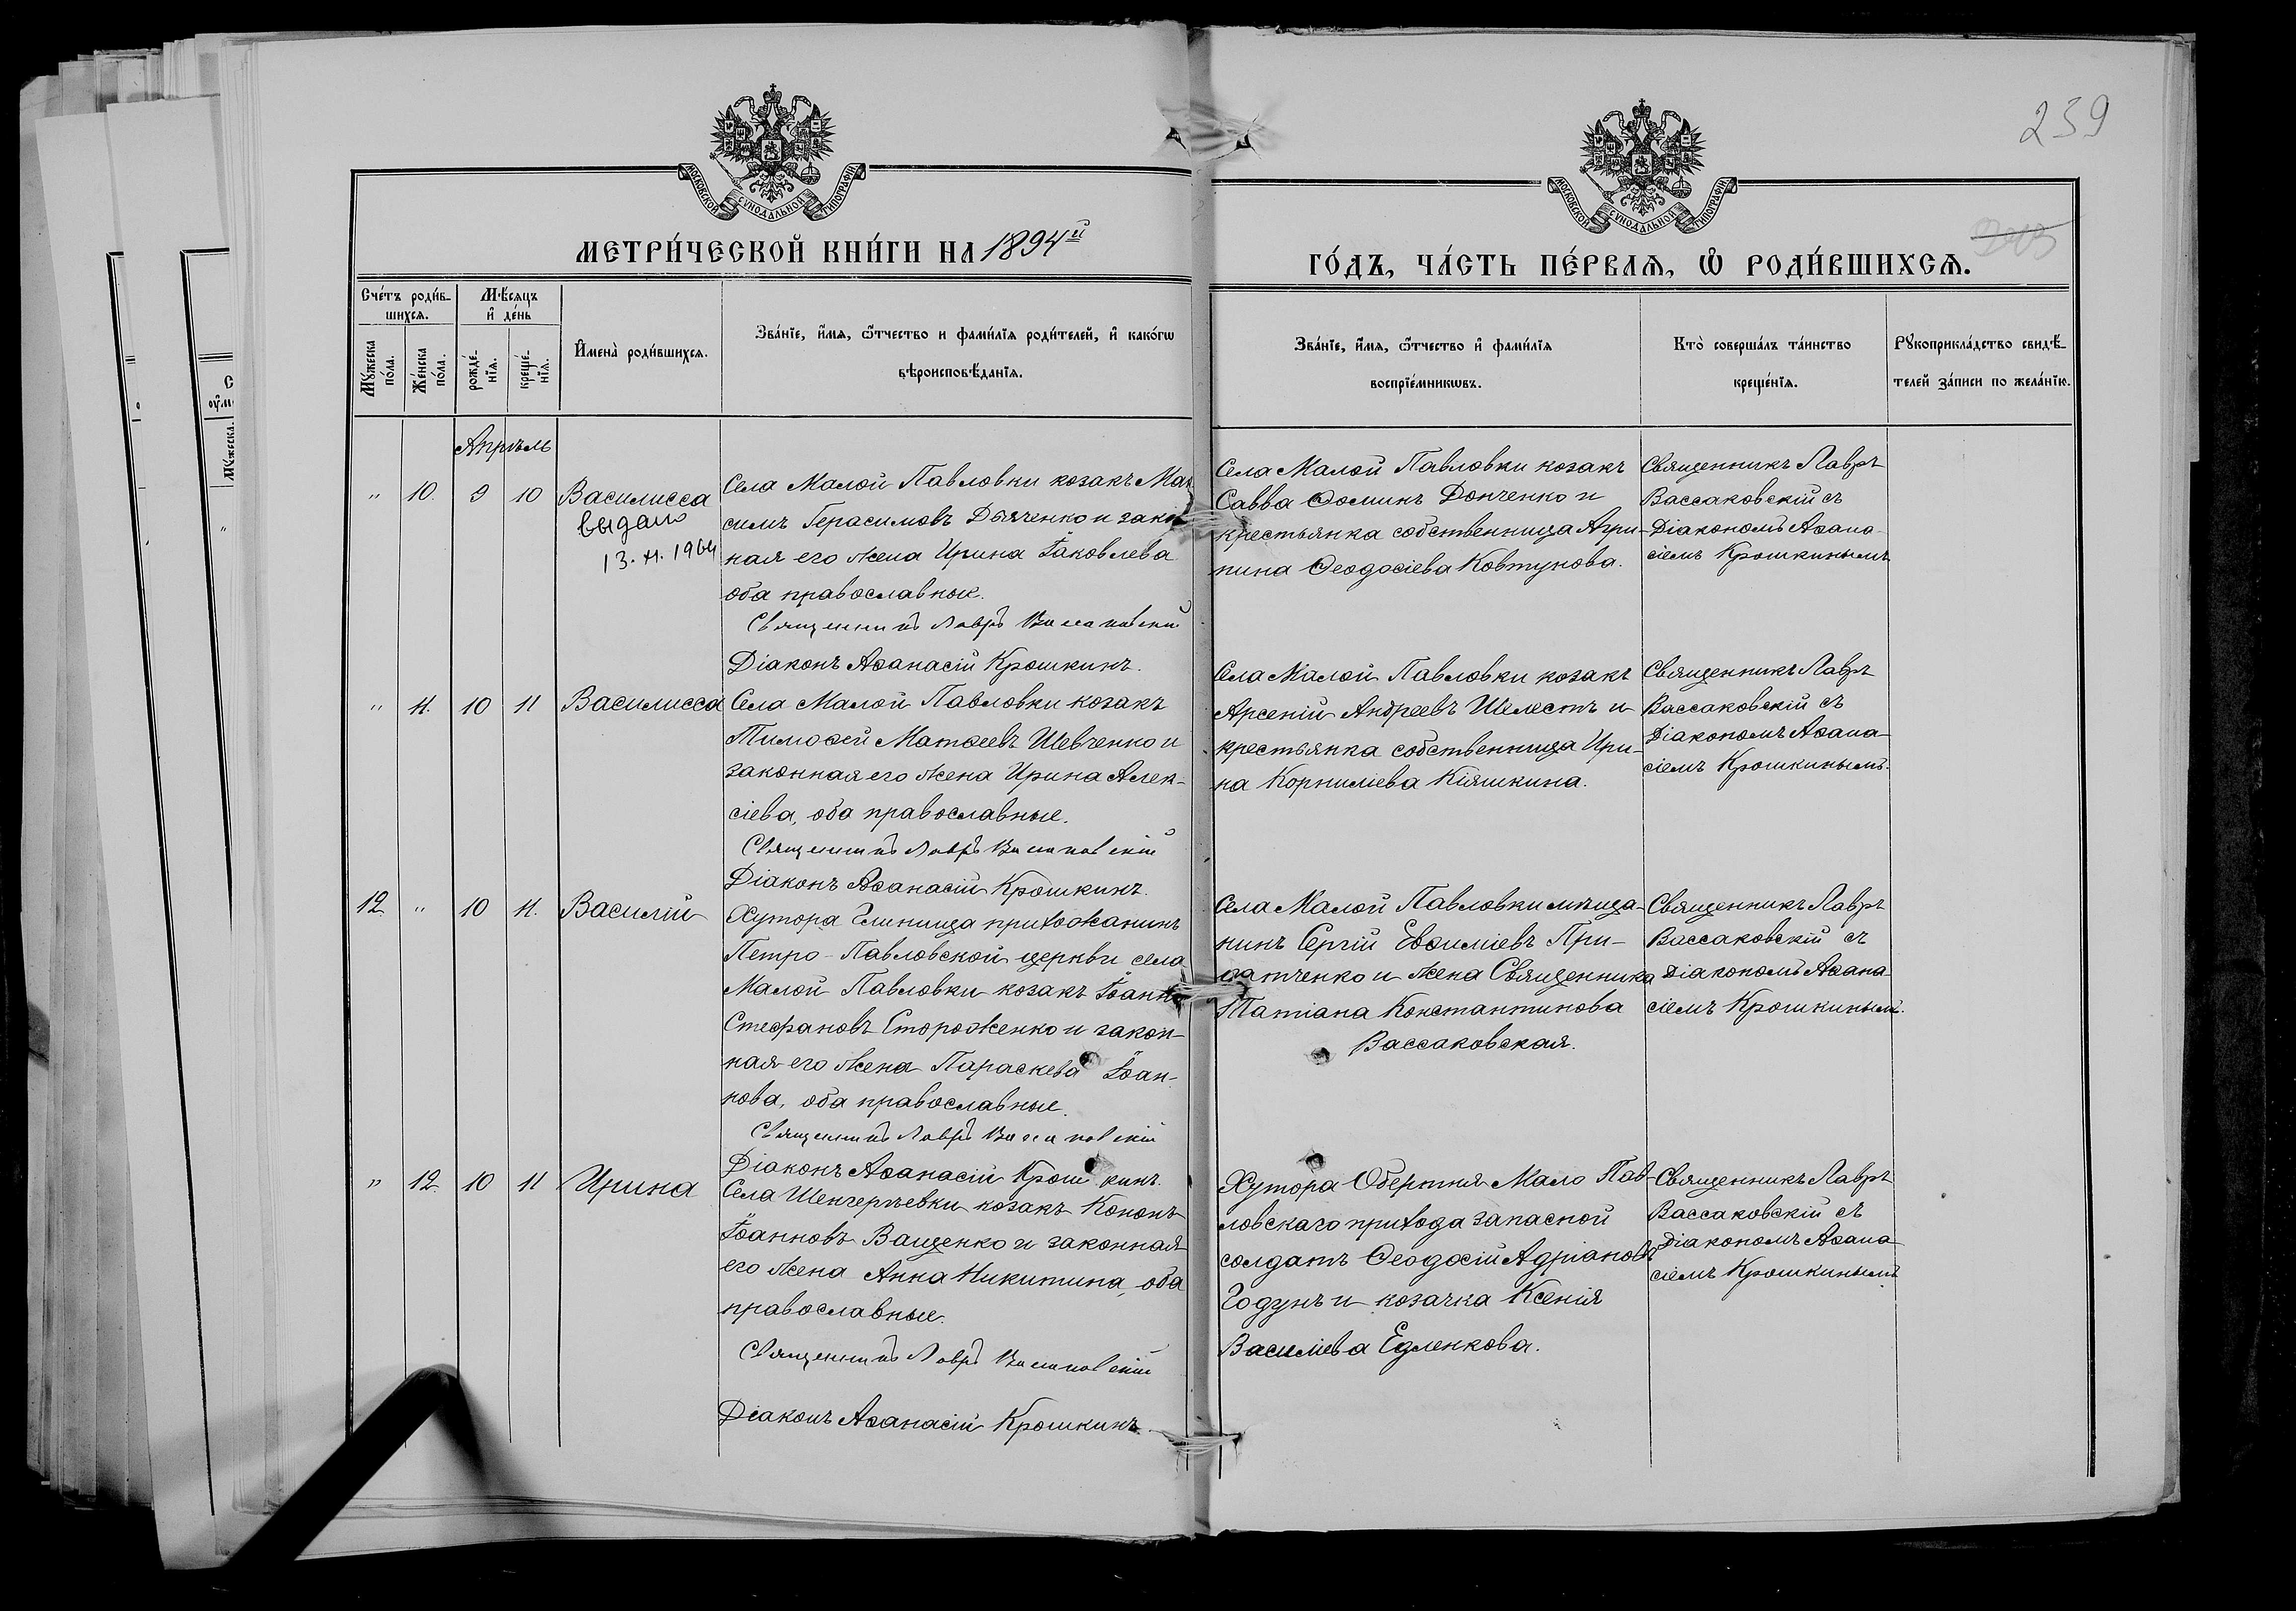 239
МОСКОВСКОЙ СУНОДАЛЬНОЙ ТИПОГРАФІИ
МОСКОВСКОЙ СУНОДАЛЬНОЙ ТИПОГРАФІИ
МЕТРИ́ЧЕСКОЙ КНИ́ГИ НА 1894й
ГО́ДЪ, ЧА́СТЬ ПЕ́РВАѦ, Ѡ҆ РОДИ́ВШИХСѦ.
Сче́тъ роди́в-
шихсѧ.
Мѣ́сѧцъ
и҆ де́нь
Мꙋ́жеска
по́ла.
Же́нска
по́ла.
рожде́-
нїѧ.
креще́-
нїѧ.
И҆мена̀ роди́вшихсѧ.
Зва́нїе, и҆́мѧ, ѻ҆́тчество и фами́лїѧ роди́телей, и҆ како́гѡ
вѣроисповѣ́данїѧ.
Зва́нїе, и҆́мѧ, ѻ҆́тчество и҆ фами́лїѧ
воспрїе́мникѡвъ.
Кто̀ соверша́лъ та́инство
креще́нїѧ.
Рꙋкоприкла́дство свидѣ́-
телей за́писи по жела́нїю.
Апрѣль
" 10. 9 10 Василисса
выдано
13. XI. 1964
Села Малой Павловки козакъ Мак
симъ Герасимовъ Дьяченко и зако
ная его жена Ирина Іаковлева
оба православные.
Священникъ Лавръ Вассаковскій
Діаконъ Аѳанасій Крошкинъ.
Села Малой Павловки козакъ
Савва Ѳоминъ Донченко и
крестьянка собственница Агри-
пина Ѳеодосіева Ковтунова.
Священникъ Лавръ
Вассаковскій съ
Діакономъ Аѳана-
сіемъ Крошкинымъ
" 11. 10 11 Василисса
Села Малой Павловки козакъ
Тимоѳей Матѳеевъ Шевченко и
законная его жена Ирина Алек-
сіева, оба православные.
Священникъ Лавръ Вассаковскій
Діаконъ Аѳанасій Крошкинъ.
Села Малой Павловки козакъ
Арсеній Андреевъ Шелестъ и
крестьянка собственница Ири-
на Корниліева Кіяшкина.
Священникъ Лавръ
Вассаковскій съ
Діакономъ Аѳана-
сіемъ Крошкинымъ.
12. " 10 11. Василій
Хутора Глинища прихожанинъ
Петро-Павловской церкви села
Малой Павловки козакъ Іоаннъ
Стефановъ Стороженко и закон-
ная его жена Параскева Іоан-
нова, оба православные.
Священникъ Лавръ Вассаковскій
Діаконъ Аѳанасій Крошкинъ.
Села Малой Павловки мѣща-
нинъ Сергій Евѳиміевъ При-
датченко и жена Священника
Татіана Константинова
Вассаковская.
Священникъ Лавръ
Вассаковскій съ
Діакономъ Аѳана
сіемъ Крошкинымъ.
" 12. 10 11 Ирина
Села Шенгерѣевки козакъ Кононъ
Іоанновъ Ващенко и законная
его жена Анна Никитина, оба
православные.
Священникъ Лавръ Вассаковскій
Діаконъ Аѳанасій Крошкинъ.
Хутора Обертня Мало Пав-
ловскаго прихода запасной
солдатъ Ѳеодосій Адріановъ
Годунъ и козачка Ксенія
Василіева Едленкова.
Священникъ Лавръ
Вассаковскій съ
Діакономъ Аѳана-
сіемъ Крошкинымъ